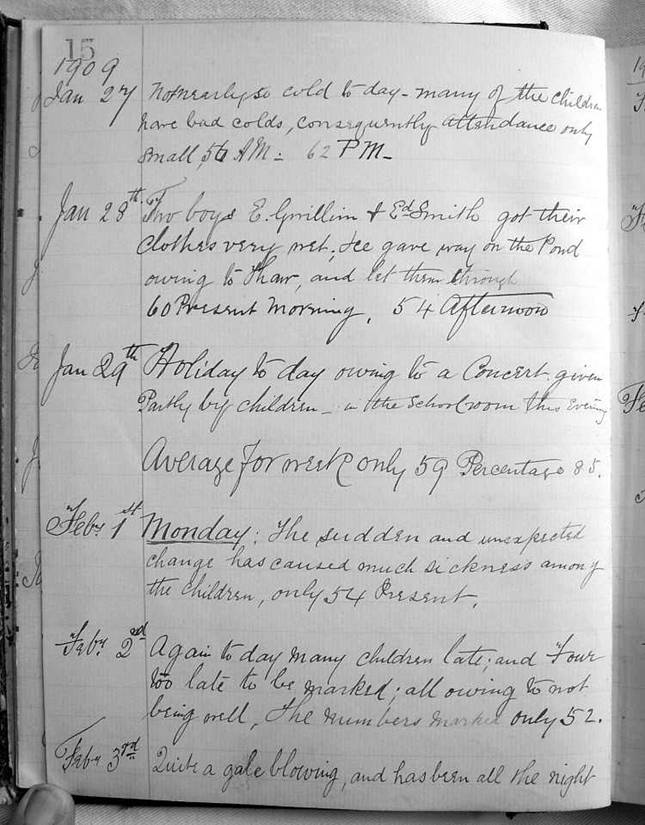 15
1909
Jan 27 Not nearly so cold to day - many of the children
have bad colds, consequently Attendance only
small, 56 A.M. - 62 P.M.
Jan 28th Two boys E. Gwillim & Ed Smith got their
clothes very wet, Ice gave way on the Pond
owing to Thaw, and let them through
60 Present Morning, 54 Afternoon
Jan 29th Holiday to day owing to a Concert given
Partly by children - in the Schoolroom this Evening
Average for week only 59 Percentage 85.
Feby 1st Monday: The sudden and unexpected
change has caused much sickness among
the children, only 54 Present.
Feby 2nd Again to day many children late; and Four
too late to be marked; all owing to not
being well, The numbers marked only 52.
Feby 3rd Quite a gale blowing, and has been all the night